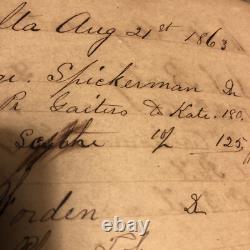 lta Aug 21st 1863
Spickerman
Pr Gaiters to Kate 180
Scythe 10/ 125
orden